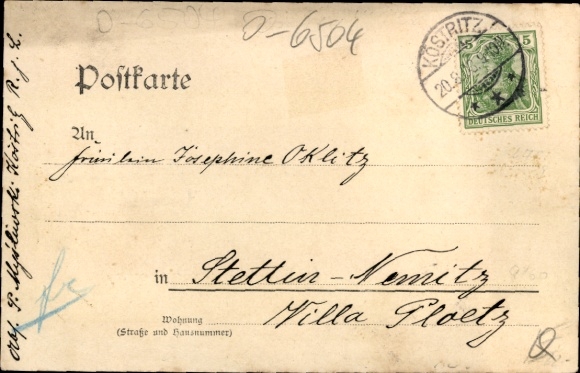 O-6504
O-6504
KÖSTRITZ
20.8
5 5
DEUTSCHES REICH
Postkarte
An
Fräulein Josephine Oklitz
in Stettin-Nemitz
Villa Ploetz
Wohnung
(Straße und Hausnummer)
Abs. P. Köstritz R. j. L.